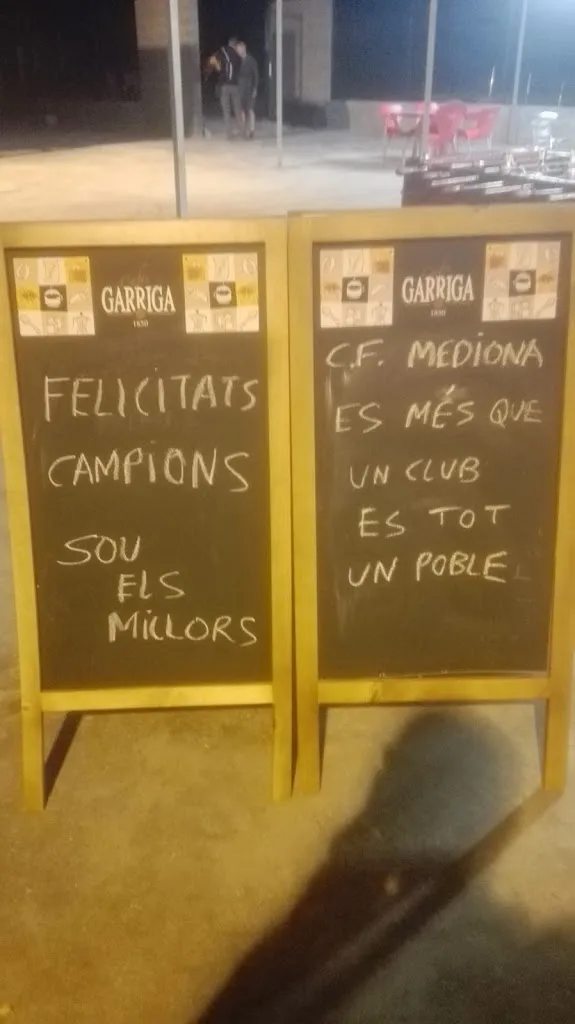 GARRIGA
1850
FELICITATS
CAMPIONS
SOU
ELS
MILLORS
GARRIGA
1850
C.F. MEDIONA
ES MÉS QUE
UN CLUB
ES TOT
UN POBLE